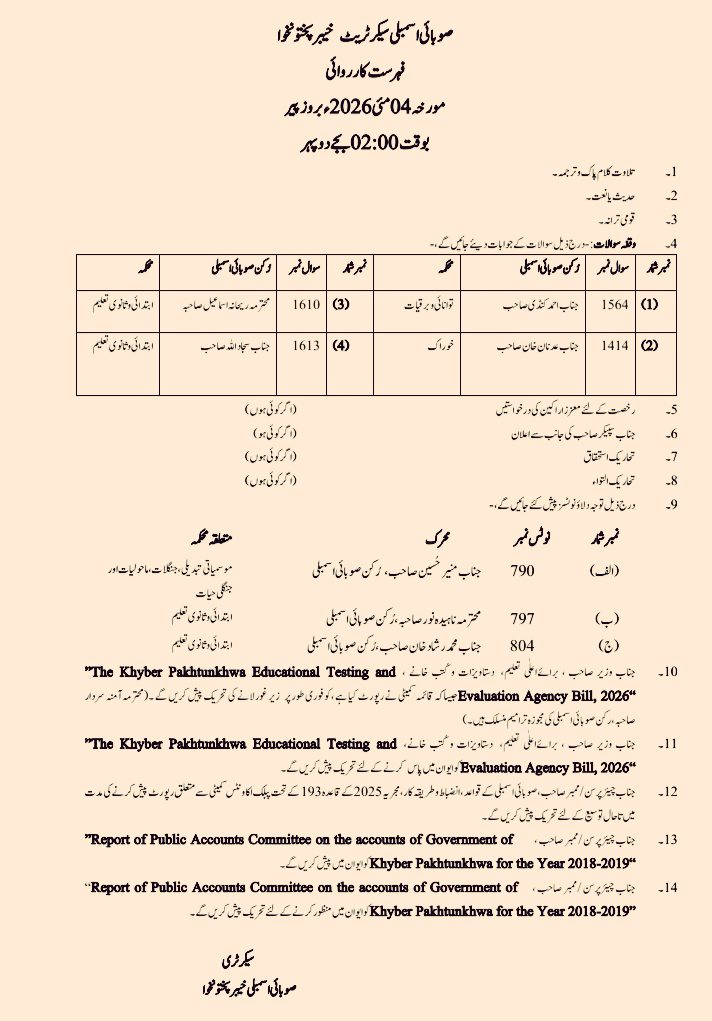 صوبائی اسمبلی سیکرٹریٹ خیبر پختونخوا
فہرست کارروائی
مورخہ 04 مئی 2026ء بروز پیر
بوقت 02:00 بجے دوپہر
1۔ تلاوت کلام پاک و ترجمہ۔
2۔ حدیث یا نعت۔
3۔ قومی ترانہ۔
4۔ وقفہ سوالات:- درج ذیل سوالات کے جوابات دیئے جائیں گے،-
نمبر شمار سوال نمبر رُکن صوبائی اسمبلی محکمہ نمبر شمار سوال نمبر رُکن صوبائی اسمبلی محکمہ
(1) 1564 جناب احمد کنڈی صاحب توانائی و برقیات (3) 1610 محترمہ ریحانہ اسماعیل صاحبہ ابتدائی و ثانوی تعلیم
(2) 1414 جناب عدنان خان صاحب خوراک (4) 1613 جناب سجاد اللہ صاحب ابتدائی و ثانوی تعلیم
5۔ رخصت کے لئے معزز اراکین کی درخواستیں (اگر کوئی ہوں)
6۔ جناب سپیکر صاحب کی جانب سے اعلان (اگر کوئی ہو)
7۔ تحاریک استحقاق (اگر کوئی ہوں)
8۔ تحاریک التواء (اگر کوئی ہوں)
9۔ درج ذیل توجہ دلاؤ نوٹسز پیش کئے جائیں گے،-
نمبر شمار نوٹس نمبر محرک متعلقہ محکمہ
(الف) 790 جناب منیر حُسین صاحب، رُکن صوبائی اسمبلی موسمیاتی تبدیلی، جنگلات، ماحولیات اور
جنگلی حیات
(ب) 797 محترمہ ناہیدہ نور صاحبہ، رُکن صوبائی اسمبلی ابتدائی و ثانوی تعلیم
(ج) 804 جناب محمد رشاد خان صاحب، رُکن صوبائی اسمبلی ابتدائی و ثانوی تعلیم
10۔ جناب وزیر صاحب ، برائے اعلٰی تعلیم، دستاویزات و کتب خانے ، ”The Khyber Pakhtunkhwa Educational Testing and
Evaluation Agency Bill, 2026“ جیسا کہ قائمہ کمیٹی نے رپورٹ کیا ہے، کو فوری طور پر زیر غور لانے کی تحریک پیش کریں گے۔ (محترمہ آمنہ سردار
صاحبہ، رکن صوبائی اسمبلی کی مجوزہ ترامیم منسلک ہیں۔)
11۔ جناب وزیر صاحب ، برائے اعلٰی تعلیم، دستاویزات و کتب خانے، ”The Khyber Pakhtunkhwa Educational Testing and
Evaluation Agency Bill, 2026“ کو ایوان میں پاس کرنے کے لئے تحریک پیش کریں گے۔
12۔ جناب چیئر پرسن/ممبر صاحب، صوبائی اسمبلی کے قواعد، انضباط و طریقہ کار، مجریہ 2025 کے قاعدہ 193 کے تحت پبلک اکاونٹس کمیٹی سے متعلق رپورٹ پیش کرنے کی مدت
میں تاحال توسیع کے لئے تحریک پیش کریں گے۔
13۔ جناب چیئر پرسن/ممبر صاحب ، ”Report of Public Accounts Committee on the accounts of Government of
Khyber Pakhtunkhwa for the Year 2018-2019“ کو ایوان میں پیش کریں گے۔
14۔ جناب چیئر پرسن/ممبر صاحب ، “Report of Public Accounts Committee on the accounts of Government of
Khyber Pakhtunkhwa for the Year 2018-2019” کو ایوان میں منظور کرنے کے لئے تحریک پیش کریں گے۔
سیکرٹری
صوبائی اسمبلی خیبر پختونخوا